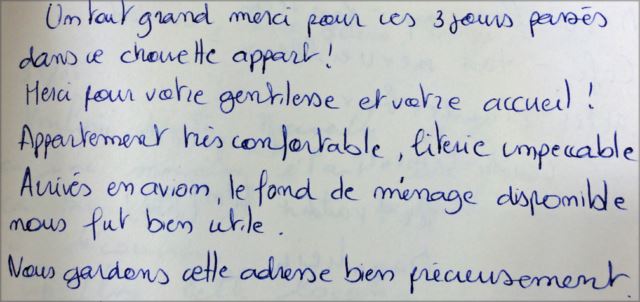 Un tout grand merci pour ces 3 jours passés
dans ce chouette appart !
Merci pour votre gentillesse et votre accueil !
Appartement très confortable, literie impeccable
Arrivés en avion, le fond de ménage disponible
nous fut bien utile.
Nous gardons cette adresse bien précieusement.